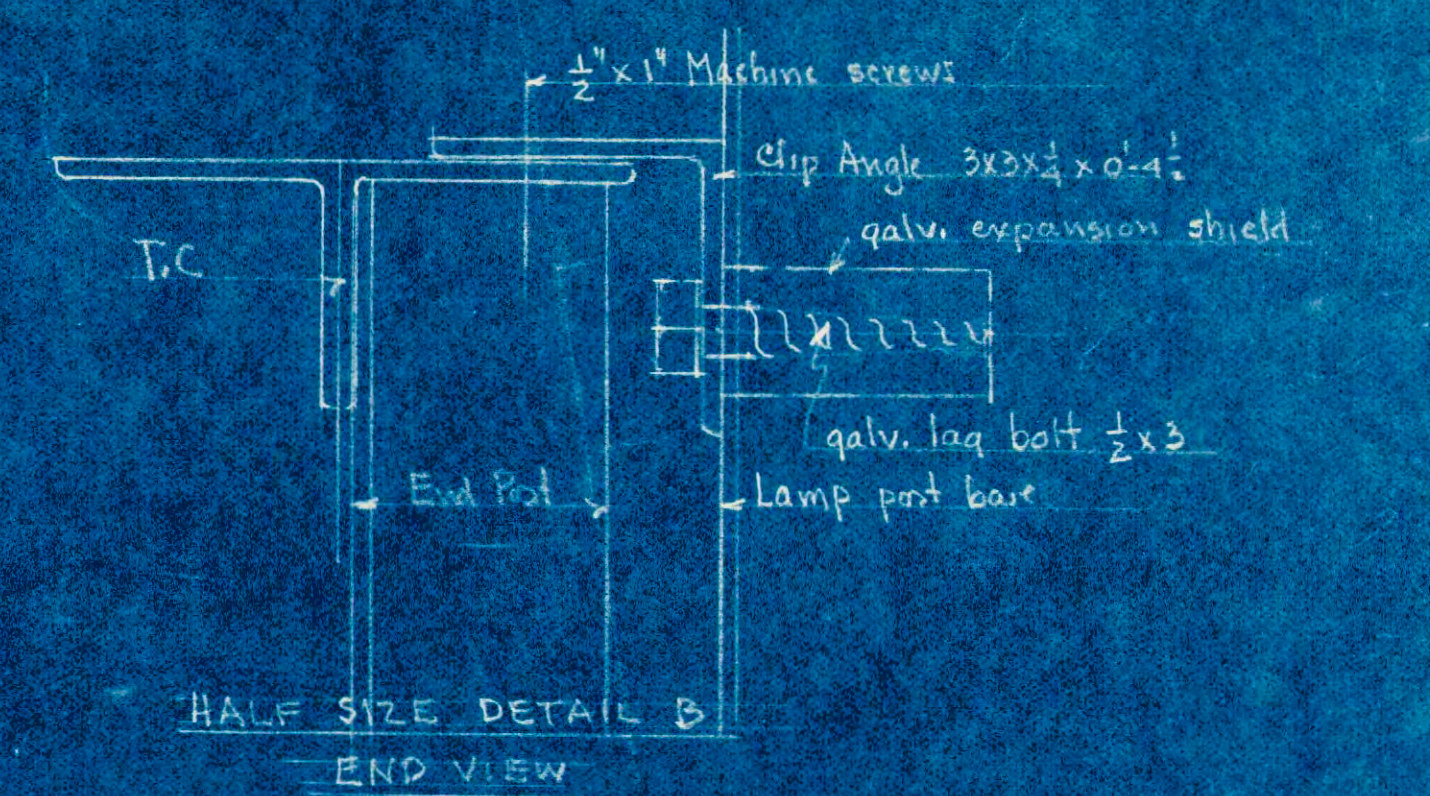 ½" x 1" Machine screws
Clip Angle 3x3x¼ x 0'-4½
galv. expansion shield
T.C
galv. lag bolt ½ x 3
End Post
Lamp post base
HALF SIZE DETAIL B
END VIEW